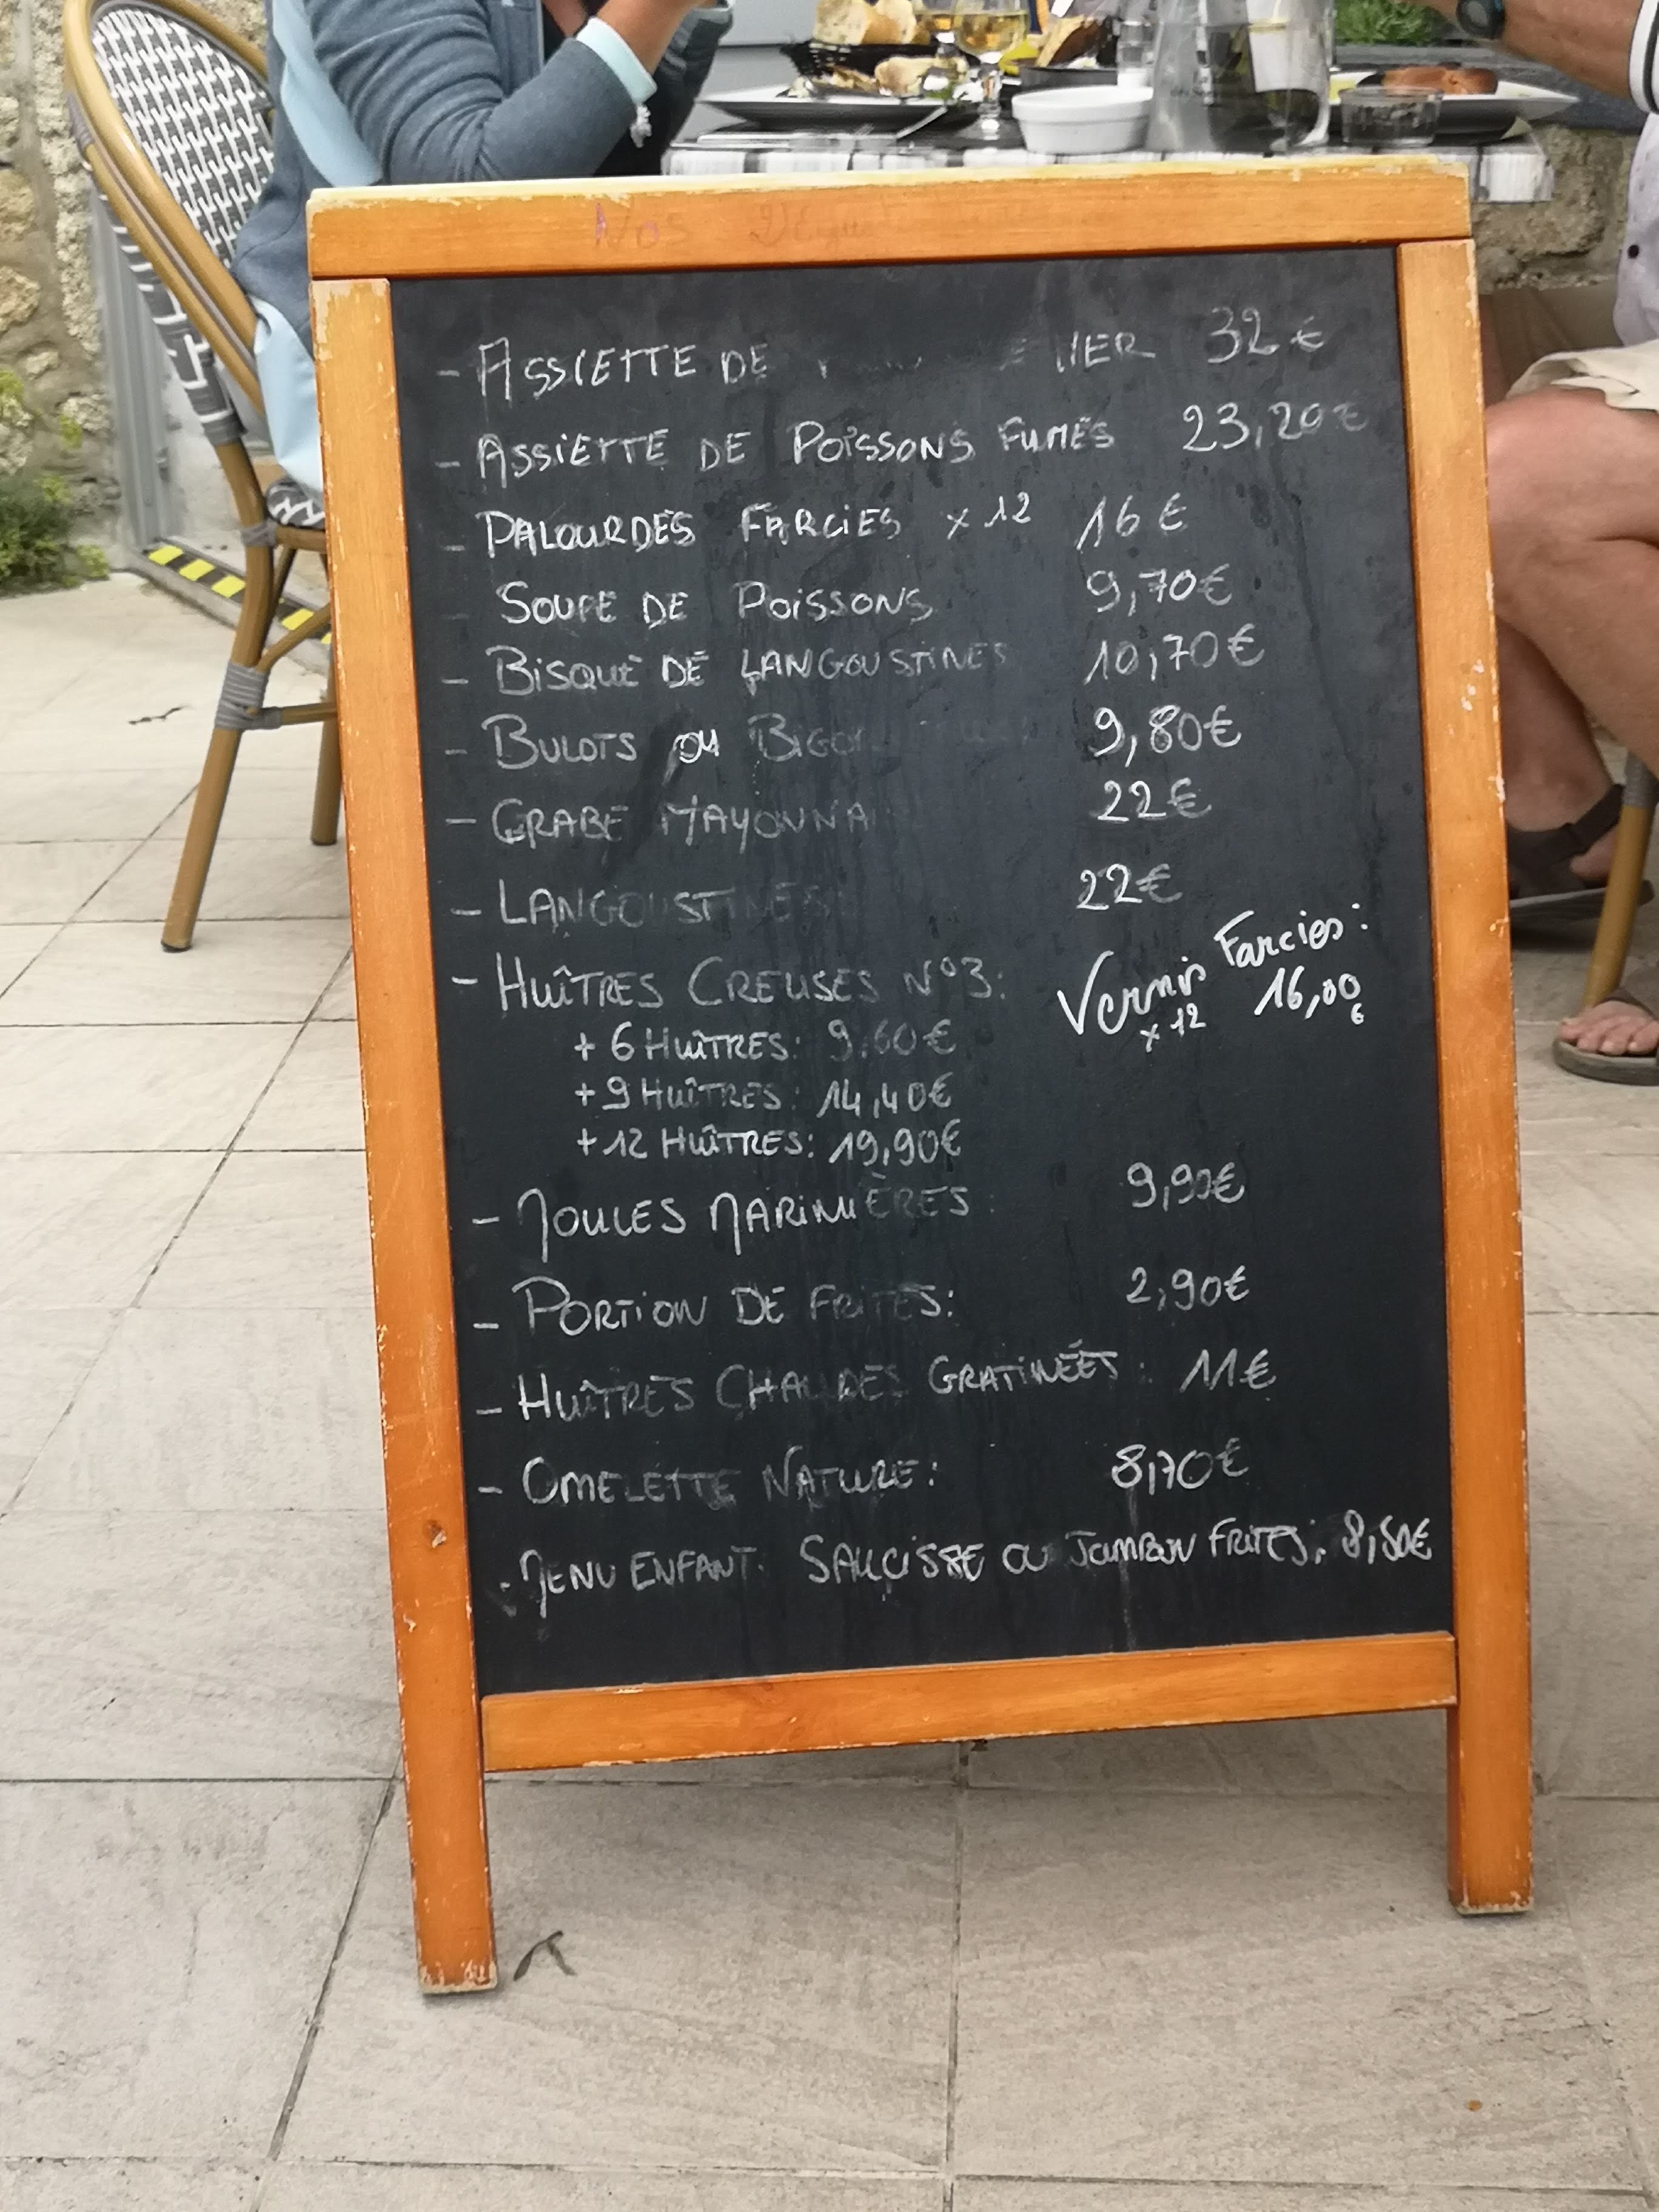 Nos
- ASSIETTE DE 32€
- ASSIETTE DE POISSONS FUMÉS 23,20€
- PALOURDES FARCIES x 12 16€
SOUPE DE POISSONS 9,70€
- BISQUE DE LANGOUSTINES 10,70€
- BULOTS OU 9,80€
- CRABE 22€
- LANGOUSTINES 22€
- HUÎTRES CREUSES N°3:
Vernis Farcies:
x 12 16,00€
+ 6 HUÎTRES: 9,60€
+ 9 HUÎTRES: 14,40€
+ 12 HUÎTRES: 19,90€
- MOULES MARINIÈRES: 9,90€
- PORTION DE FRITES: 2,90€
- HUÎTRES CHAUDES GRATINÉES: 11€
- OMELETTE NATURE: 8,70€
- MENU ENFANT: SAUCISSE OU JAMBON FRITES: 8,50€